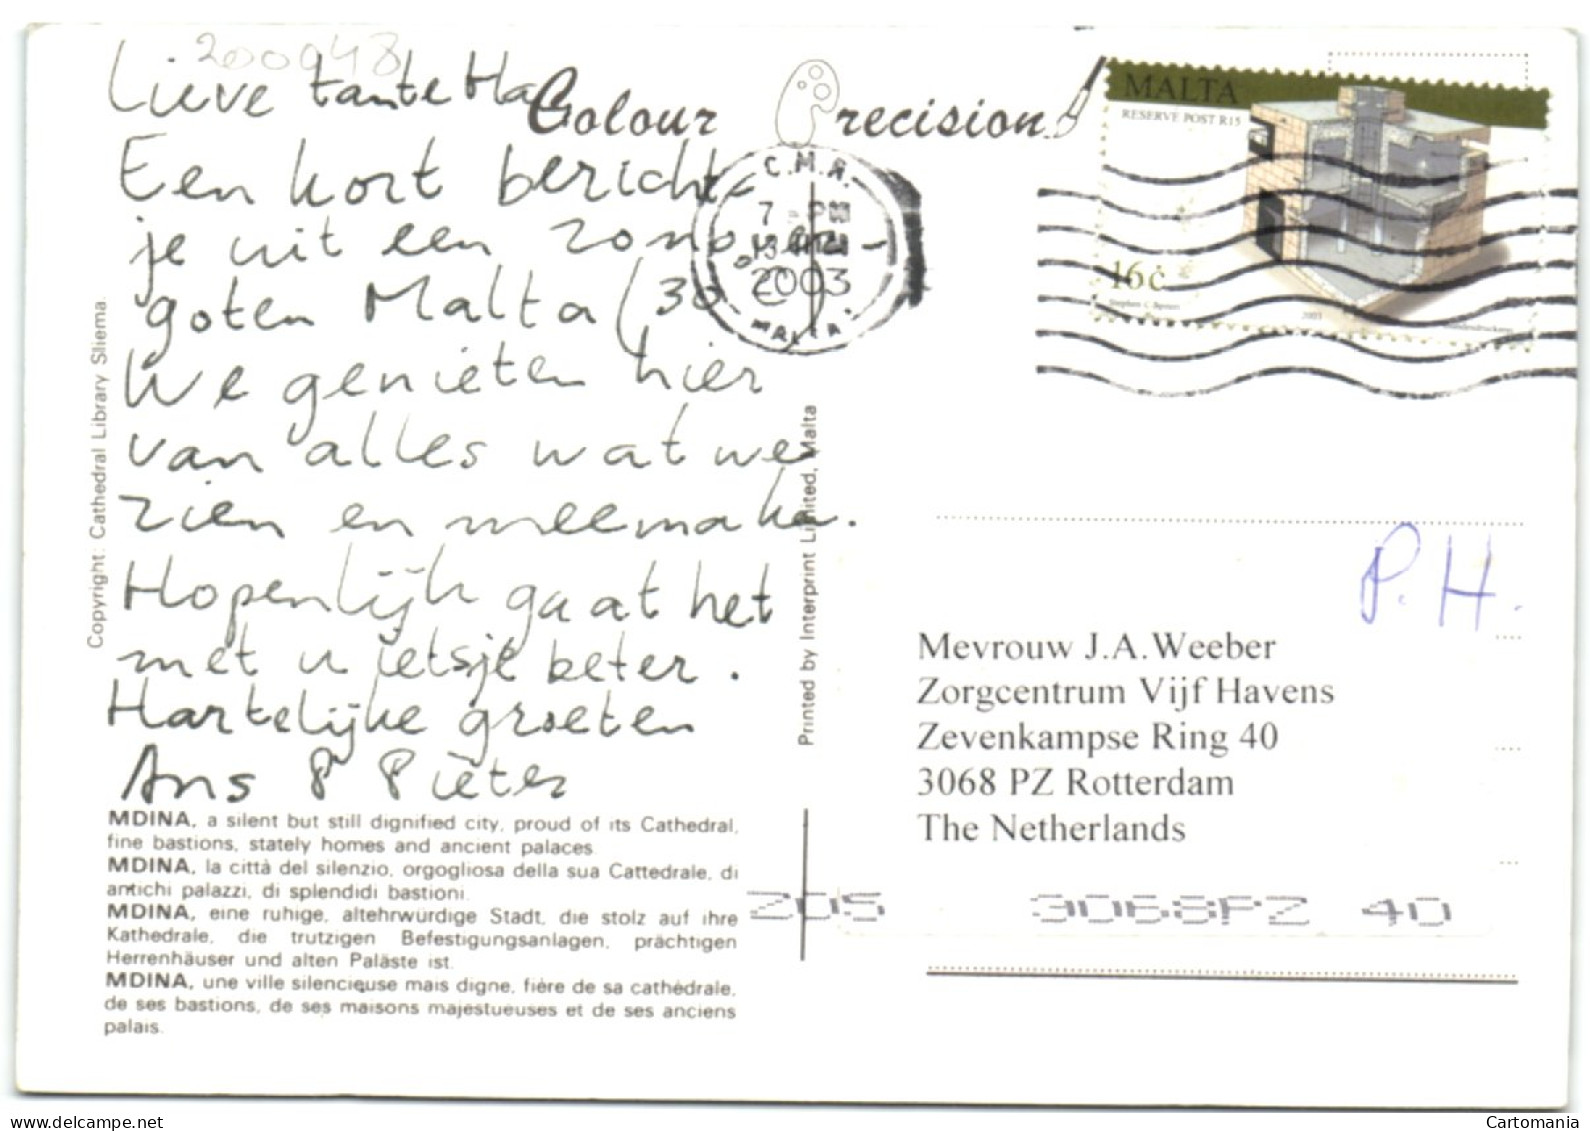 200048
Lieve tante Ha
Een kort bericht-
je uit een zonover-
goten Malta (30°C)
We genieten hier
van alles wat we
zien en meemaken.
Hopenlijk gaat het
met u ietsje beter.
Hartelijke groeten
Ans & Pieter
MDINA, a silent but still dignified city, proud of its Cathedral,
fine bastions, stately homes and ancient palaces.
MDINA, la città del silenzio, orgogliosa della sua Cattedrale, di
antichi palazzi, di splendidi bastioni.
MDINA, eine ruhige, altehrwürdige Stadt, die stolz auf ihre
Kathedrale, die trutzigen Befestigungsanlagen, prächtigen
Herrenhäuser und alten Paläste ist.
MDINA, une ville silencieuse mais digne, fière de sa cathédrale,
de ses bastions, de ses maisons majestueuses et de ses anciens
palais.
Copyright: Cathedral Library Sliema.
Colour Precision
Printed by Interprint Limited, Malta
C.M.R.
7 PM
13
2003
MALTA
MALTA
RESERVE POST R15
16c
2003
P.H.
Mevrouw J.A.Weeber
Zorgcentrum Vijf Havens
Zevenkampse Ring 40
3068 PZ Rotterdam
The Netherlands
205 3068PZ 40
Cartomania